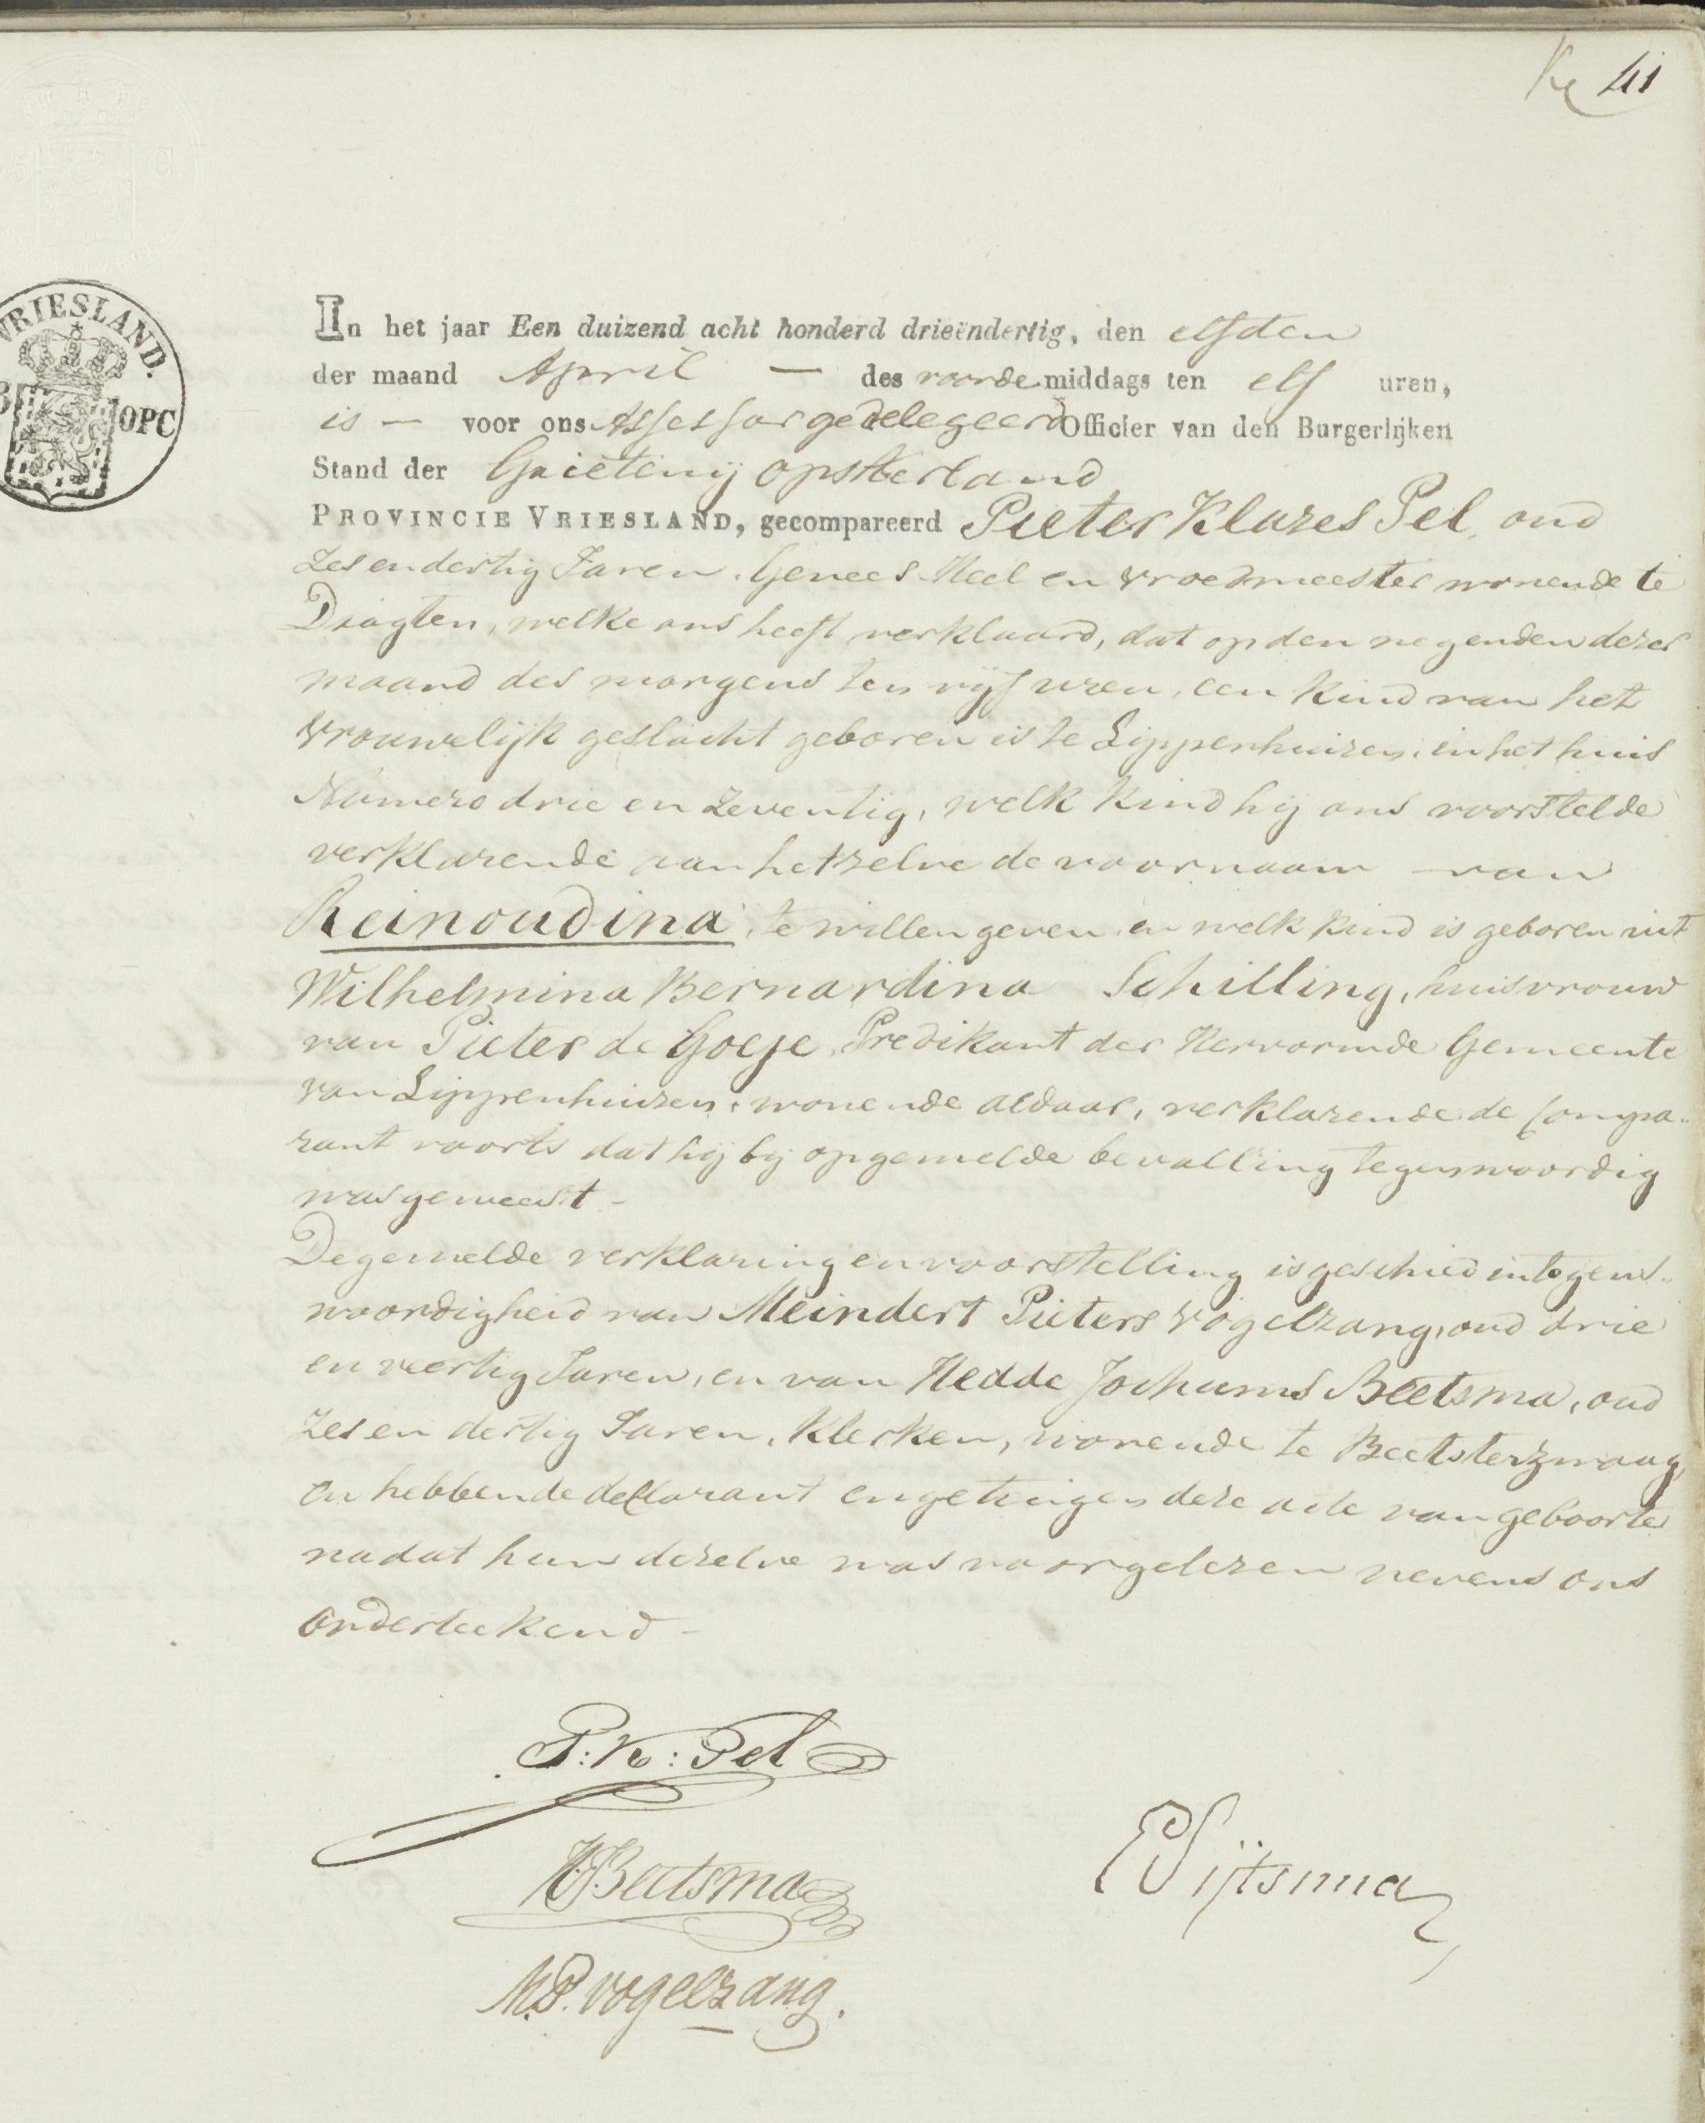 No 41
VRIESLAND.
OPC
In het jaar Een duizend acht honderd drieëndertig, den elfden
der maand April — des voorde middags ten elf uren,
is — voor ons Assessor gedelegeerd Officier van den Burgerlijken
Stand der Grietenij Opsterland
PROVINCIE VRIESLAND, gecompareerd Pieter Klazes Pel, oud
zes en dertig Jaren, Genees- Heel en Vroedmeester wonende te
Dragten, welke ons heeft verklaard, dat op den negenden dezer
maand des morgens ten vijf uren, een kind van het
Vrouwelijk geslacht geboren is te Lippenhuizen, in het huis
Numero drie en zeventig, welk kind hij ons voorstelde
verklarende aan hetzelve de voornaam van
Reinoudina, te willen geven en welk kind is geboren uit
Wilhelmina Bernardina Schilling, huisvrouw
van Pieter de Goeje, Predikant der Hervormde Gemeente
van Lippenhuizen, wonende aldaar, verklarende de Compa-
rant voorts dat hij bij opgemelde bevalling tegenwoordig
was geweest -
De gemelde verklaring en voorstelling is geschied in tegens-
woordigheid van Meindert Pieters Vogelzang, oud drie
en veertig Jaren, en van Hedde Jochums Beetsma, oud
zes en dertig Jaren, Klerken, wonende te Beetsterzwaag,
en hebbende declarant en getuigen deze acte van geboorte
nadat hun dezelve was voorgelezen nevens ons
onderteekend -
P: K: Pel
HJBeetsma
ESijtsma
M.P. Vogelzang.